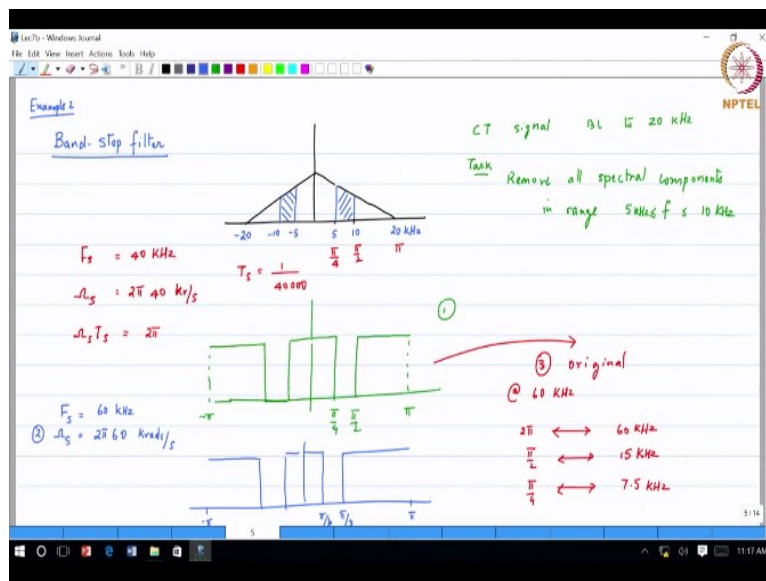 Lec7b - Windows Journal
File Edit View Insert Actions Tools Help
NPTEL
Example 2
Band-stop filter
CT signal BL to 20 kHz
Task
Remove all spectral components
in range 5kHz ≤ f ≤ 10 KHz
-20 -10 -5 5 10 20 kHz
π/4 π/2 π
Fs = 40 KHz
Ts = 1/40000
Ωs = 2π 40 kr/s
Ωs Ts = 2π
①
-π π/4 π/2 π
③ original
@ 60 KHz
2π ⟷ 60 KHz
π/2 ⟷ 15 KHz
π/4 ⟷ 7.5 KHz
Fs = 60 kHz
② Ωs = 2π 60 Krads/s
-π π/6 π/3 π
5
5/14
11:17 AM